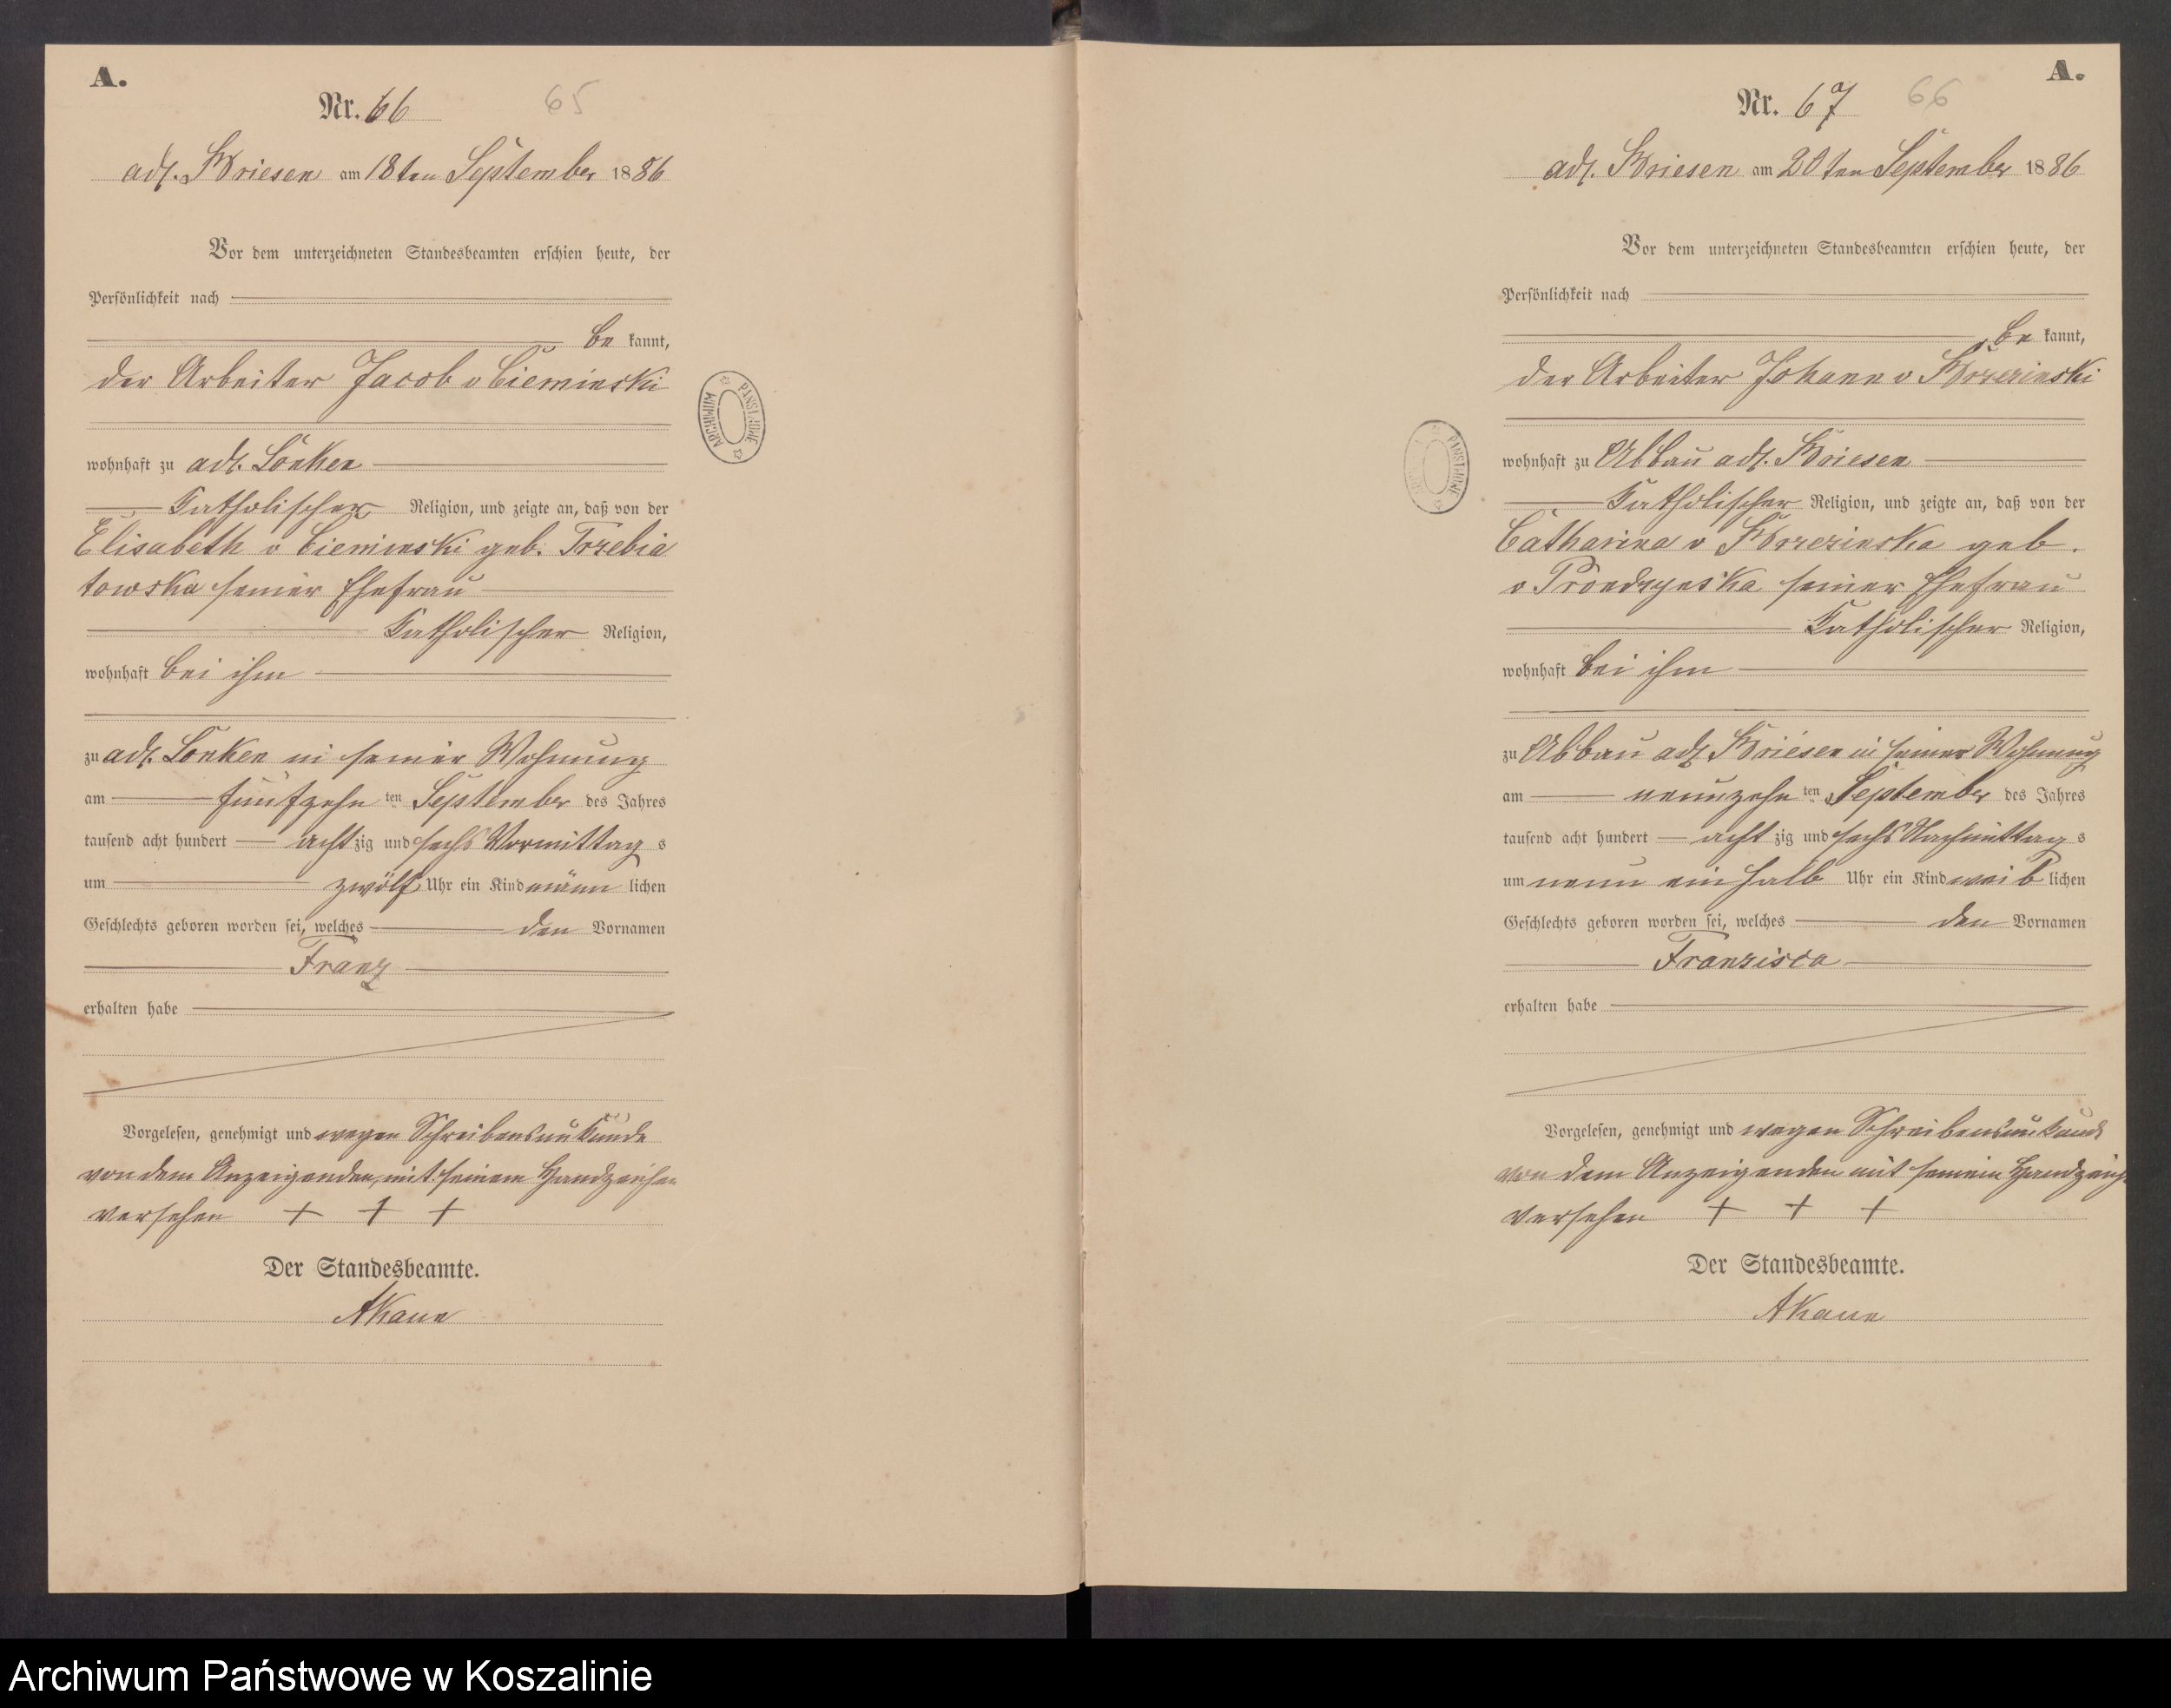 A.
Nr. 66 65
adl. Briesen am 18ten September 1886
Vor dem unterzeichneten Standesbeamten erschien heute, der
Persönlichkeit nach
be kannt,
der Arbeiter Jacob v Cieminski
wohnhaft zu adl. Lonken
Katholischer Religion, und zeigte an, daß von der
Elisabeth v Cieminski geb. Trzebia
towska seiner Ehefrau
Katholischer Religion,
wohnhaft bei ihm
zu adl. Lonken in seiner Wohnung
am fünfzehn ten September des Jahres
tausend acht hundert acht zig und sechs Vormittag s
um zwölf Uhr ein Kind männ lichen
Geschlechts geboren worden sei, welches den Vornamen
Franz
erhalten habe
Vorgelesen, genehmigt und wegen Schreibensunkunde
von dem Anzeigenden, mit seinem Handzeichen
versehen + + +
Der Standesbeamte.
AKaun
ARCHIWUM PAŃSTWOWE
A.
Nr. 67 66
adl. Briesen am 20ten September 1886
Vor dem unterzeichneten Standesbeamten erschien heute, der
Persönlichkeit nach
be kannt,
der Arbeiter Johann v Brzezinski
wohnhaft zu Abbau adl. Briesen
Katholischer Religion, und zeigte an, daß von der
Catharina v Brzezinska geb.
v Prondzynska seiner Ehefrau
Katholischer Religion,
wohnhaft bei ihm
zu Abbau adl. Briesen in seiner Wohnung
am neunzehn ten September des Jahres
tausend acht hundert acht zig und sechs Nachmittag s
um neun ein halb Uhr ein Kind weib lichen
Geschlechts geboren worden sei, welches den Vornamen
Franzisca
erhalten habe
Vorgelesen, genehmigt und wegen Schreibensunkunde
von dem Anzeigenden mit seinem Handzeich
versehen + + +
Der Standesbeamte.
AKaun
Archiwum Państwowe w Koszalinie